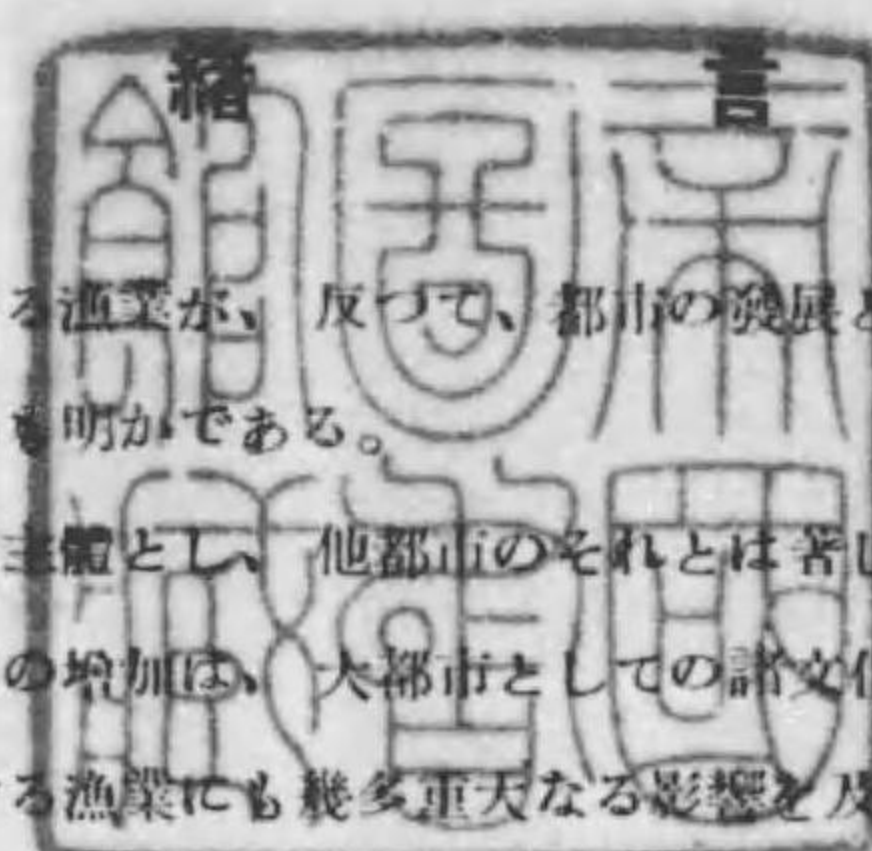 緒言
る漁業が、反つて、都市の發展と
明かである。
主體とし、他都市のそれとは著し
の增加は、大都市としての諸文化
る漁業にも幾多重大なる影響を及
帝國圖書館藏